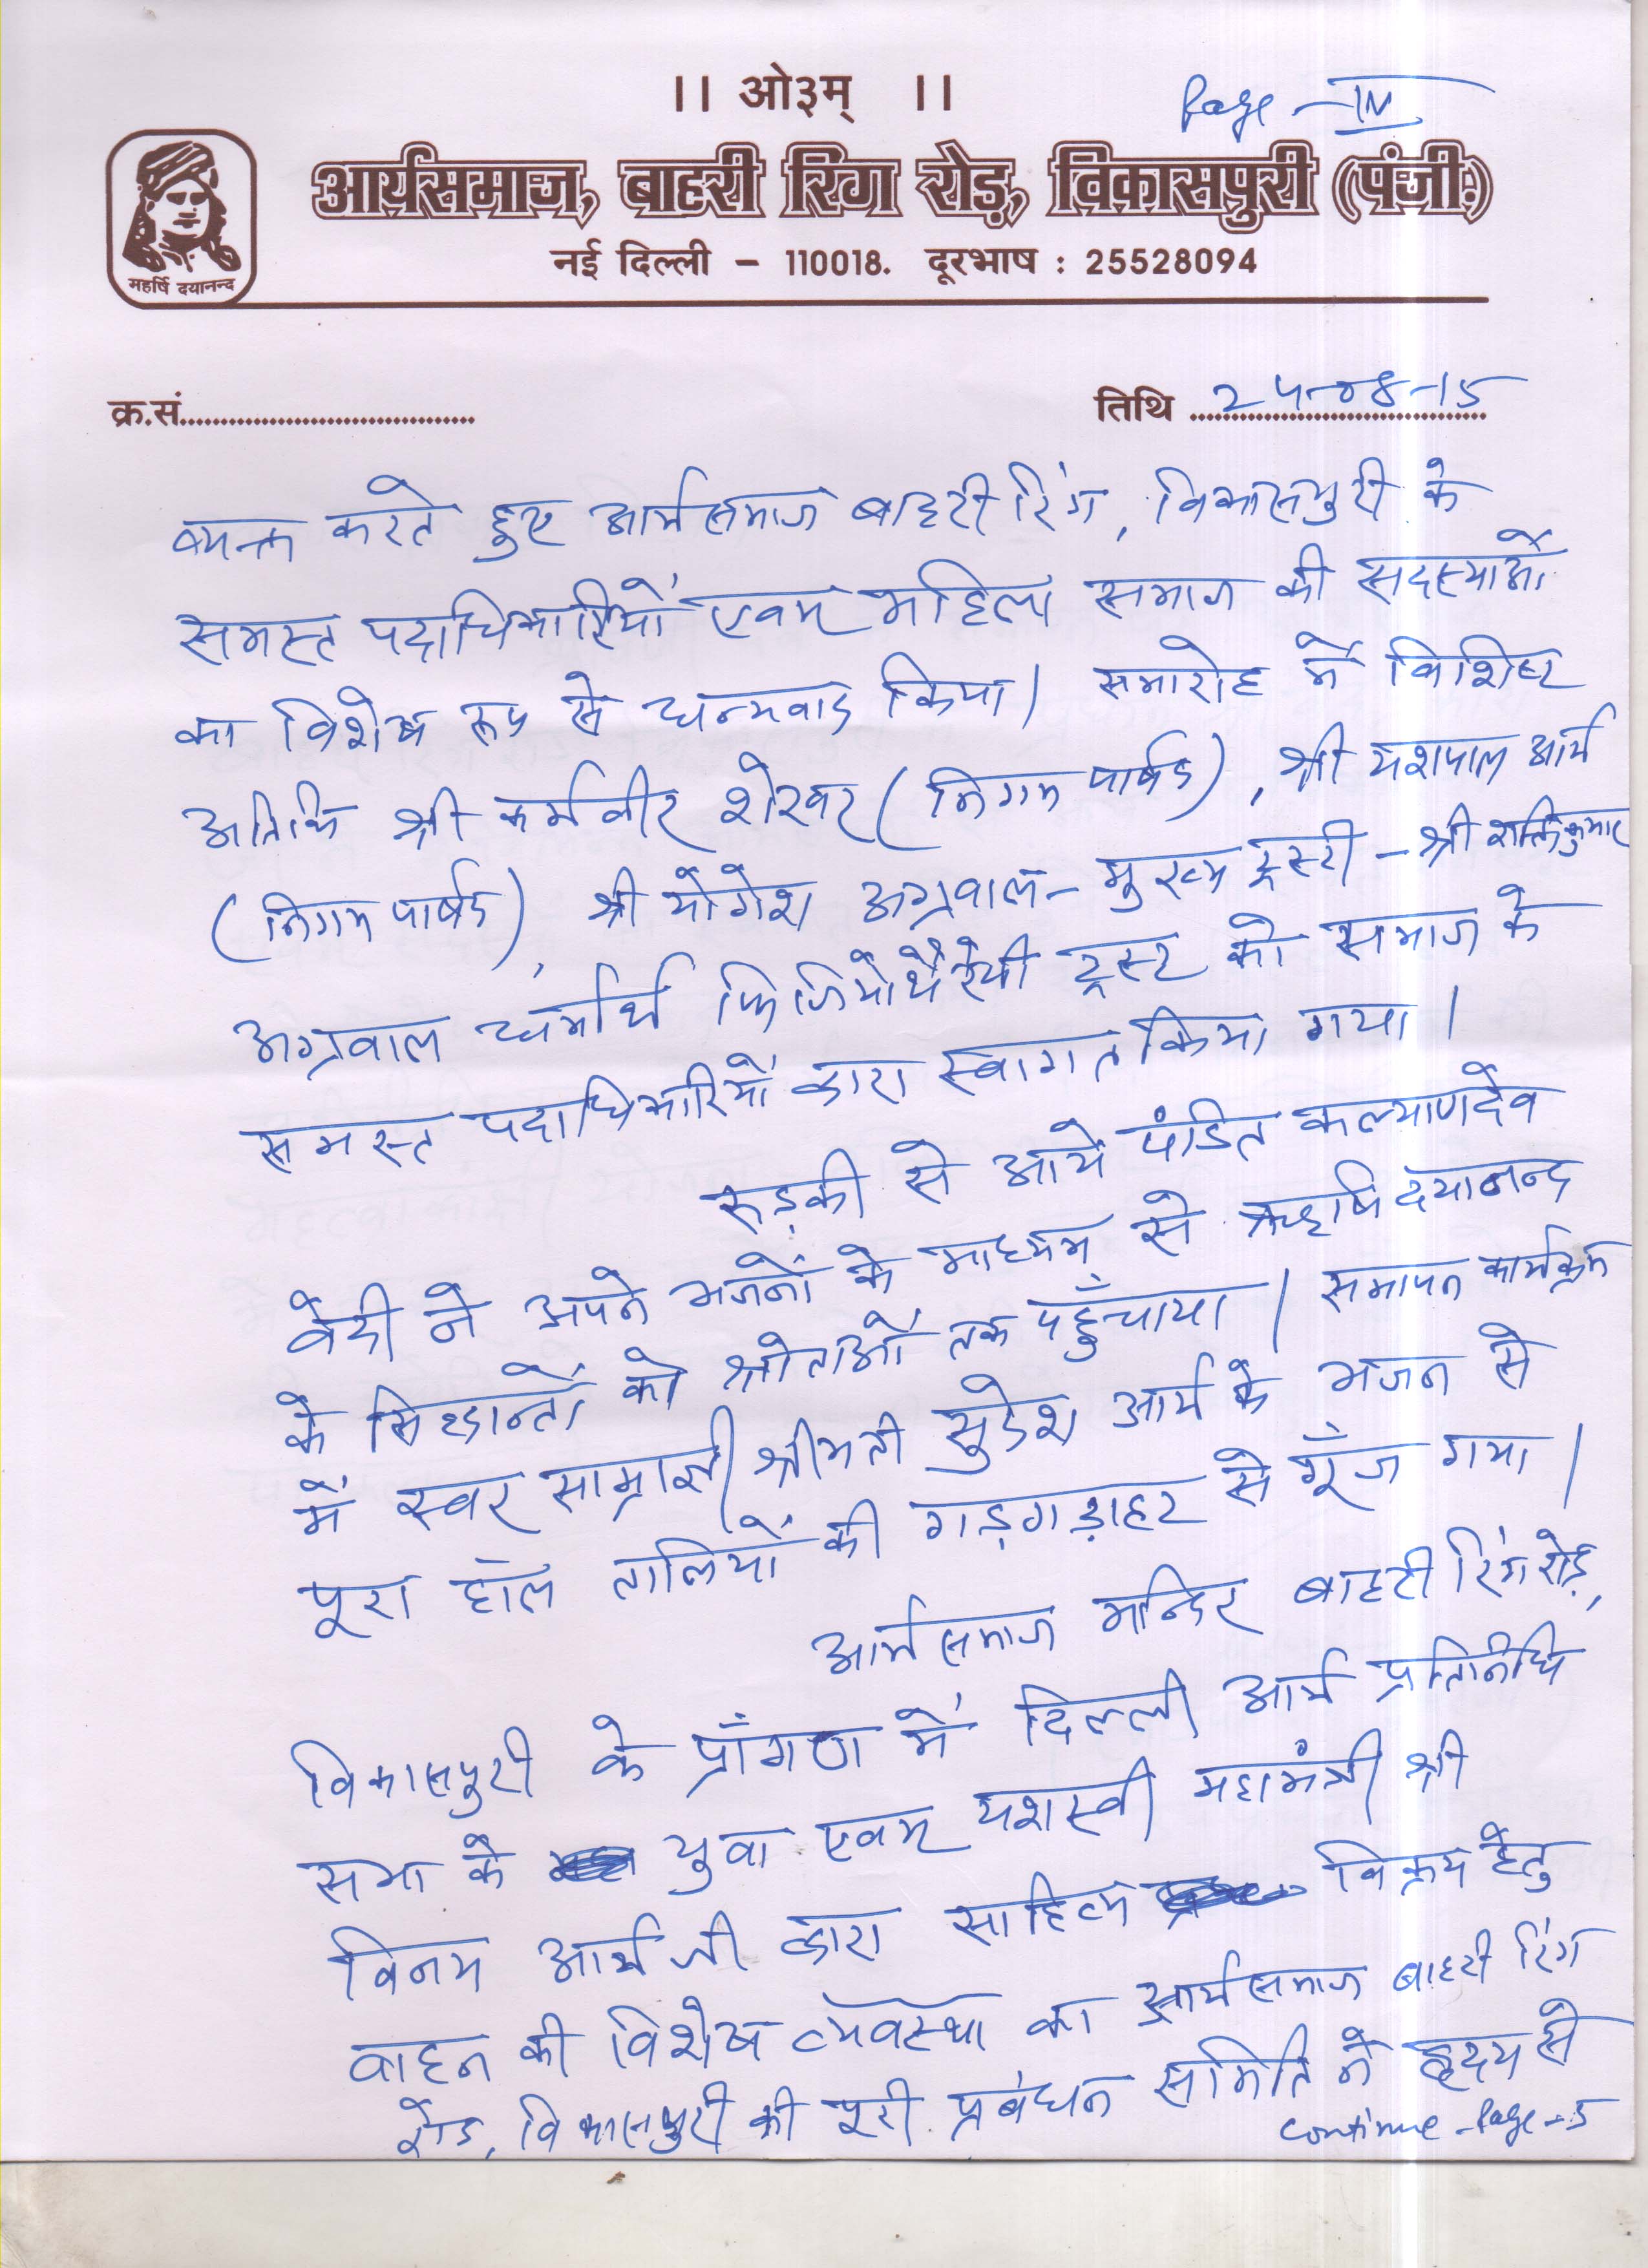 ।। ओ३म् ।।
Page - IV
आर्यसमाज, बाहरी रिंग रोड़, विकासपुरी (पंजी.)
नई दिल्ली - 110018. दूरभाष : 25528094
महर्षि दयानन्द
क्र.सं.
तिथि 24-08-15
व्यक्त करते हुए आर्यसमाज बाहरी रिंग, विकासपुरी के
समस्त पदाधिकारियों एवम महिला समाज की सदस्याओं
का विशेष रूप से धन्यवाद किया। समारोह में विशिष्ट
अतिथि श्री कर्मवीर शेखर (निगम पार्षद), श्री यशपाल आर्य
(निगम पार्षद), श्री योगेश अग्रवाल - मुख्य ट्रस्टी - श्री शक्तिकुमार
अग्रवाल धर्मार्थ फिजियोथैरेपी ट्रस्ट को समाज के
समस्त पदाधिकारियों द्वारा स्वागत किया गया।
रूड़की से आये पंडित कल्याणदेव
वेदी ने अपने भजनों के माध्यम से ऋषि दयानन्द
के सिद्धान्तों को श्रोताओं तक पहुँचाया। समापन कार्यक्रम
में स्वर साम्राज्ञी श्रीमती सुदेश आर्य के भजन से
पूरा हॉल तालियों की गड़गड़ाहट से गूँज गया।
आर्यसमाज मन्दिर बाहरी रिंग रोड़,
विकासपुरी के प्राँगण में दिल्ली आर्य प्रतिनिधि
सभा के युवा एवम यशस्वी महामंत्री श्री
विनय आर्य जी द्वारा साहित्य विक्रय हेतु
वाहन की विशेष व्यवस्था का आर्यसमाज बाहरी रिंग
रोड, विकासपुरी की पूरी प्रबंधन समिति ने हृदय से
continue - Page - 5